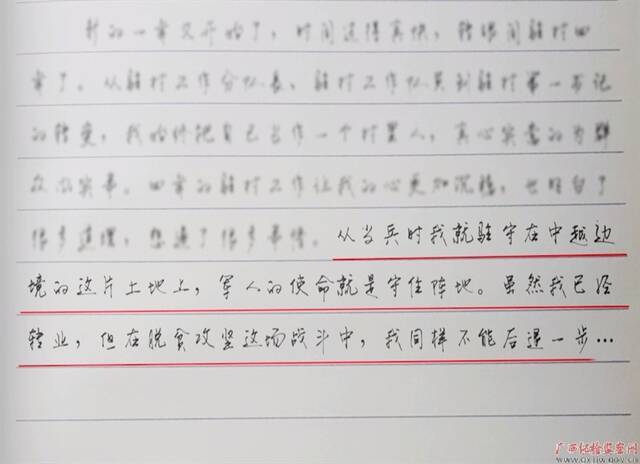 新的一年又开始了，时间过得真快，转眼间驻村四
年了。从驻村工作分队长、驻村工作队员到驻村第一书记
的转变，我始终把自己当作一个村里人，真心实意的为群
众办实事。四年的驻村工作让我的心更加沉稳，也明白了
很多道理，想通了很多事情。从当兵时我就驻守在中越边
境的这片土地上，军人的使命就是守住阵地。虽然我已经
转业，但在脱贫攻坚这场战斗中，我同样不能后退一步…
广西纪检监察网
www.gxjjw.gov.cn